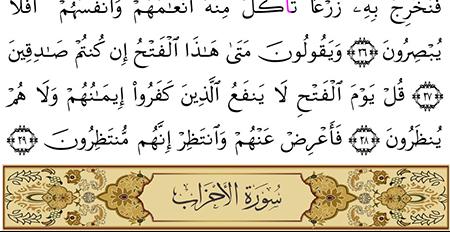 فَنُخْرِجُ بِهِۦ زَرْعًا تَأْكُلُ مِنْهُ أَنْعَٰمُهُمْ وَأَنفُسُهُمْ ۖ أَفَلَا
يُبْصِرُونَ ﴿٢٦﴾ وَيَقُولُونَ مَتَىٰ هَٰذَا ٱلْفَتْحُ إِن كُنتُمْ صَٰدِقِينَ
﴿٢٧﴾ قُلْ يَوْمَ ٱلْفَتْحِ لَا يَنفَعُ ٱلَّذِينَ كَفَرُوٓا۟ إِيمَٰنُهُمْ وَلَا هُمْ
يُنظَرُونَ ﴿٢٨﴾ فَأَعْرِضْ عَنْهُمْ وَٱنتَظِرْ إِنَّهُم مُّنتَظِرُونَ ﴿٢٩﴾
سُورَةُ الْأَحْزَابِ